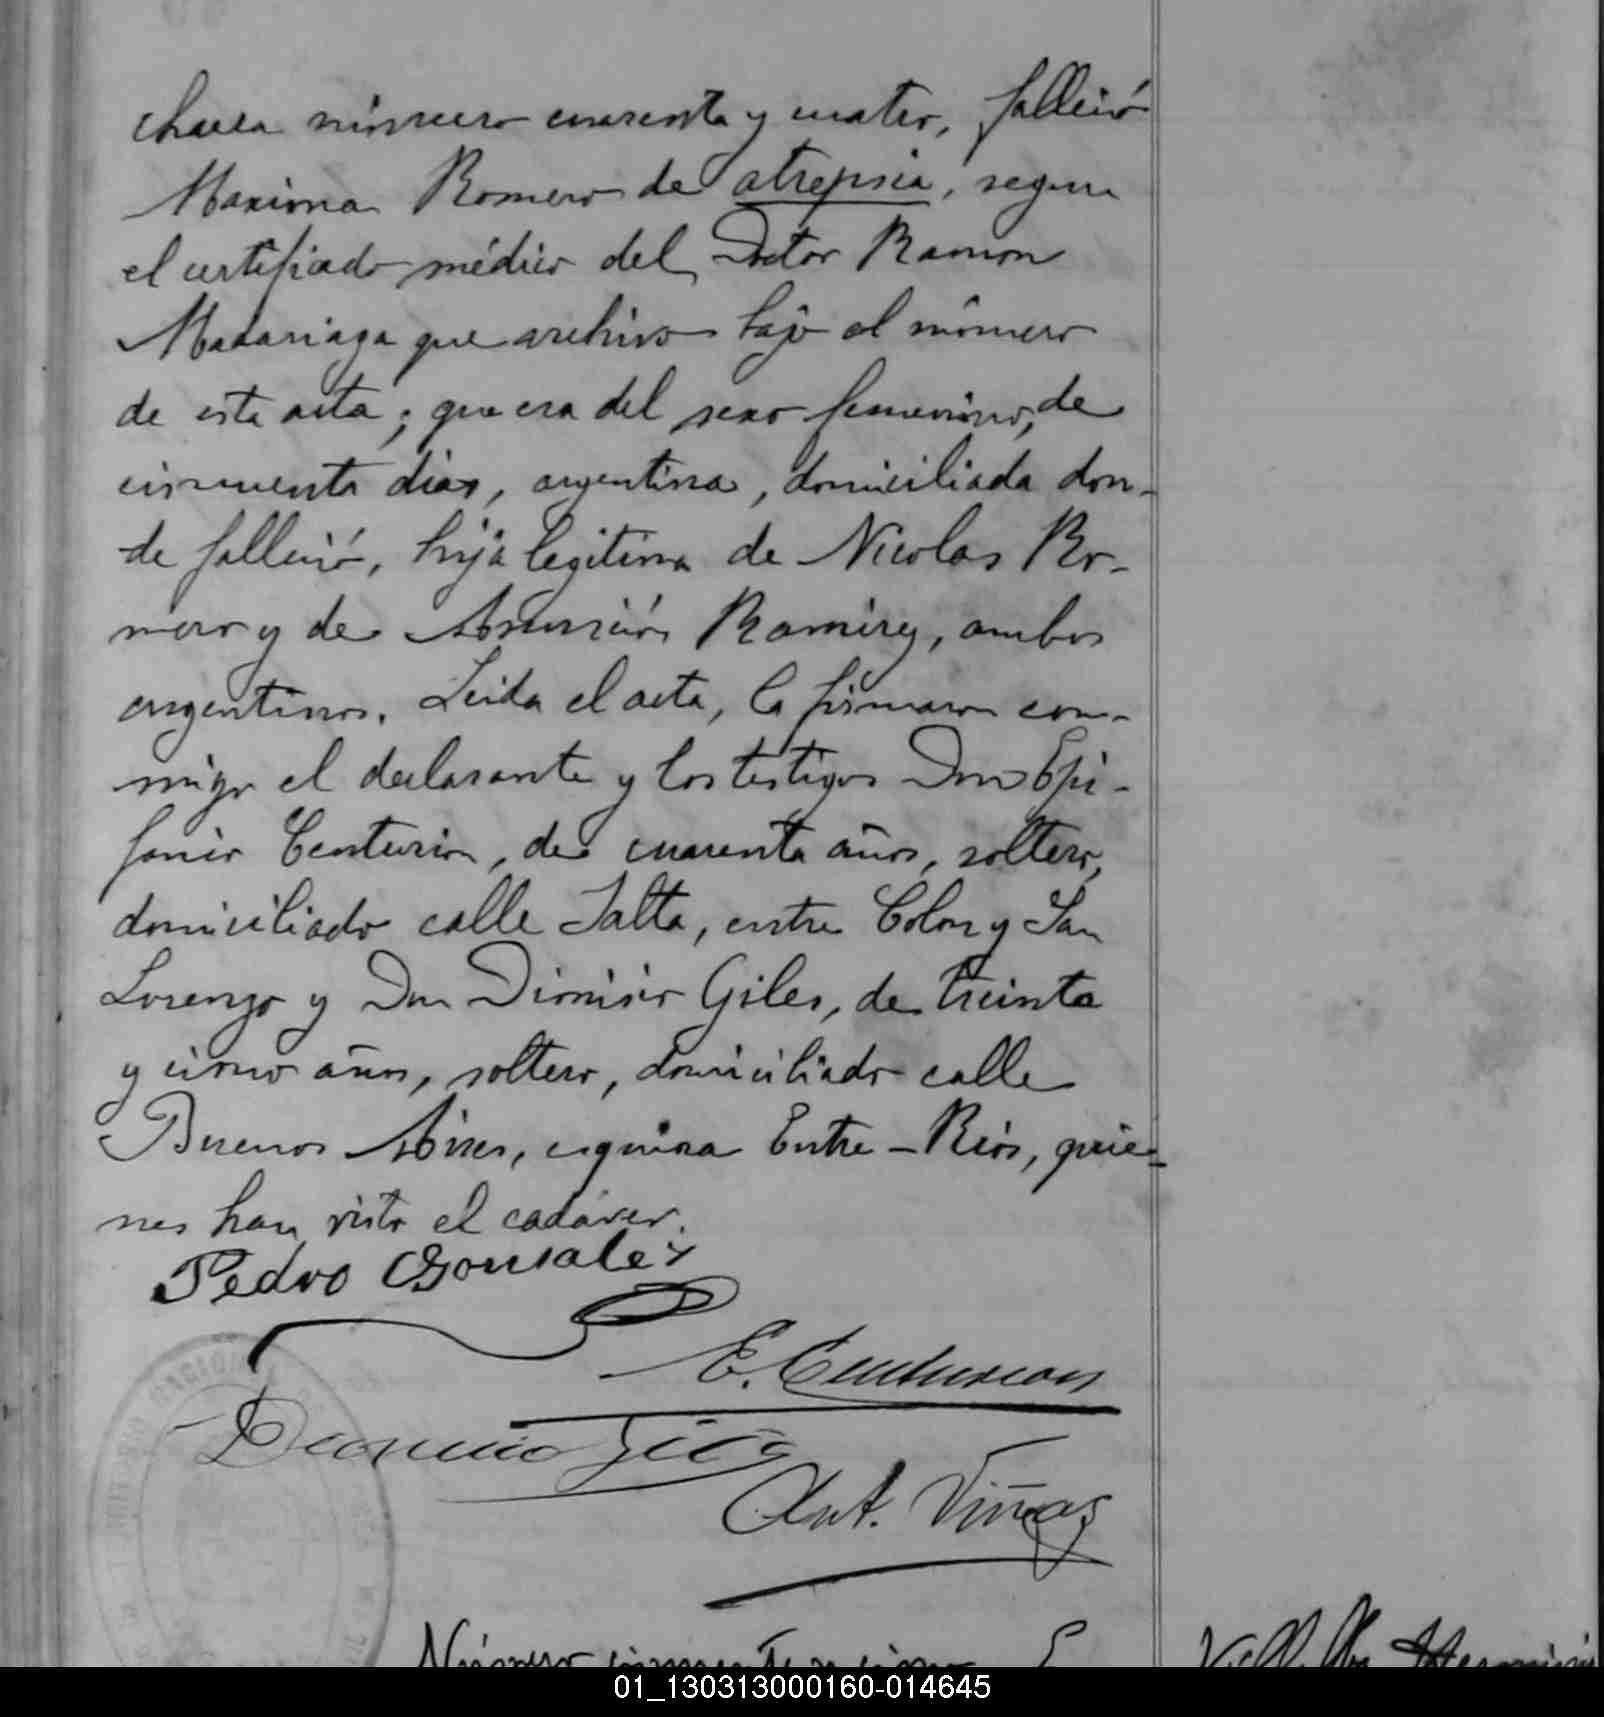 chacra número cuarenta y cuatro, falleció
Maxima Romero de atrepsia, segun
el certificado médico del Doctor Ramon
Madariaga que archivo bajo el número
de esta acta; que era del sexo femenino, de
cincuenta dias, argentina, domiciliada don-
de falleció, hija legitima de Nicolas Ro-
mero y de Asunción Ramirez, ambos
argentinos. Leida el acta, la firmaron con-
migo el declarante y los testigos Don Epi-
fanio Centurion, de cuarenta años, soltero,
domiciliado calle Salta, entre Colon y San
Lorenzo y Don Dionisio Giles, de treinta
y cinco años, soltero, domiciliado calle
Buenos Aires, esquina Entre-Rios, quie-
nes han visto el cadáver.
Pedro Gonsales
E. Centurion
Dionicio Giles
Ant. Viñas
Número cincuenta y cinco
01_130313000160-014645